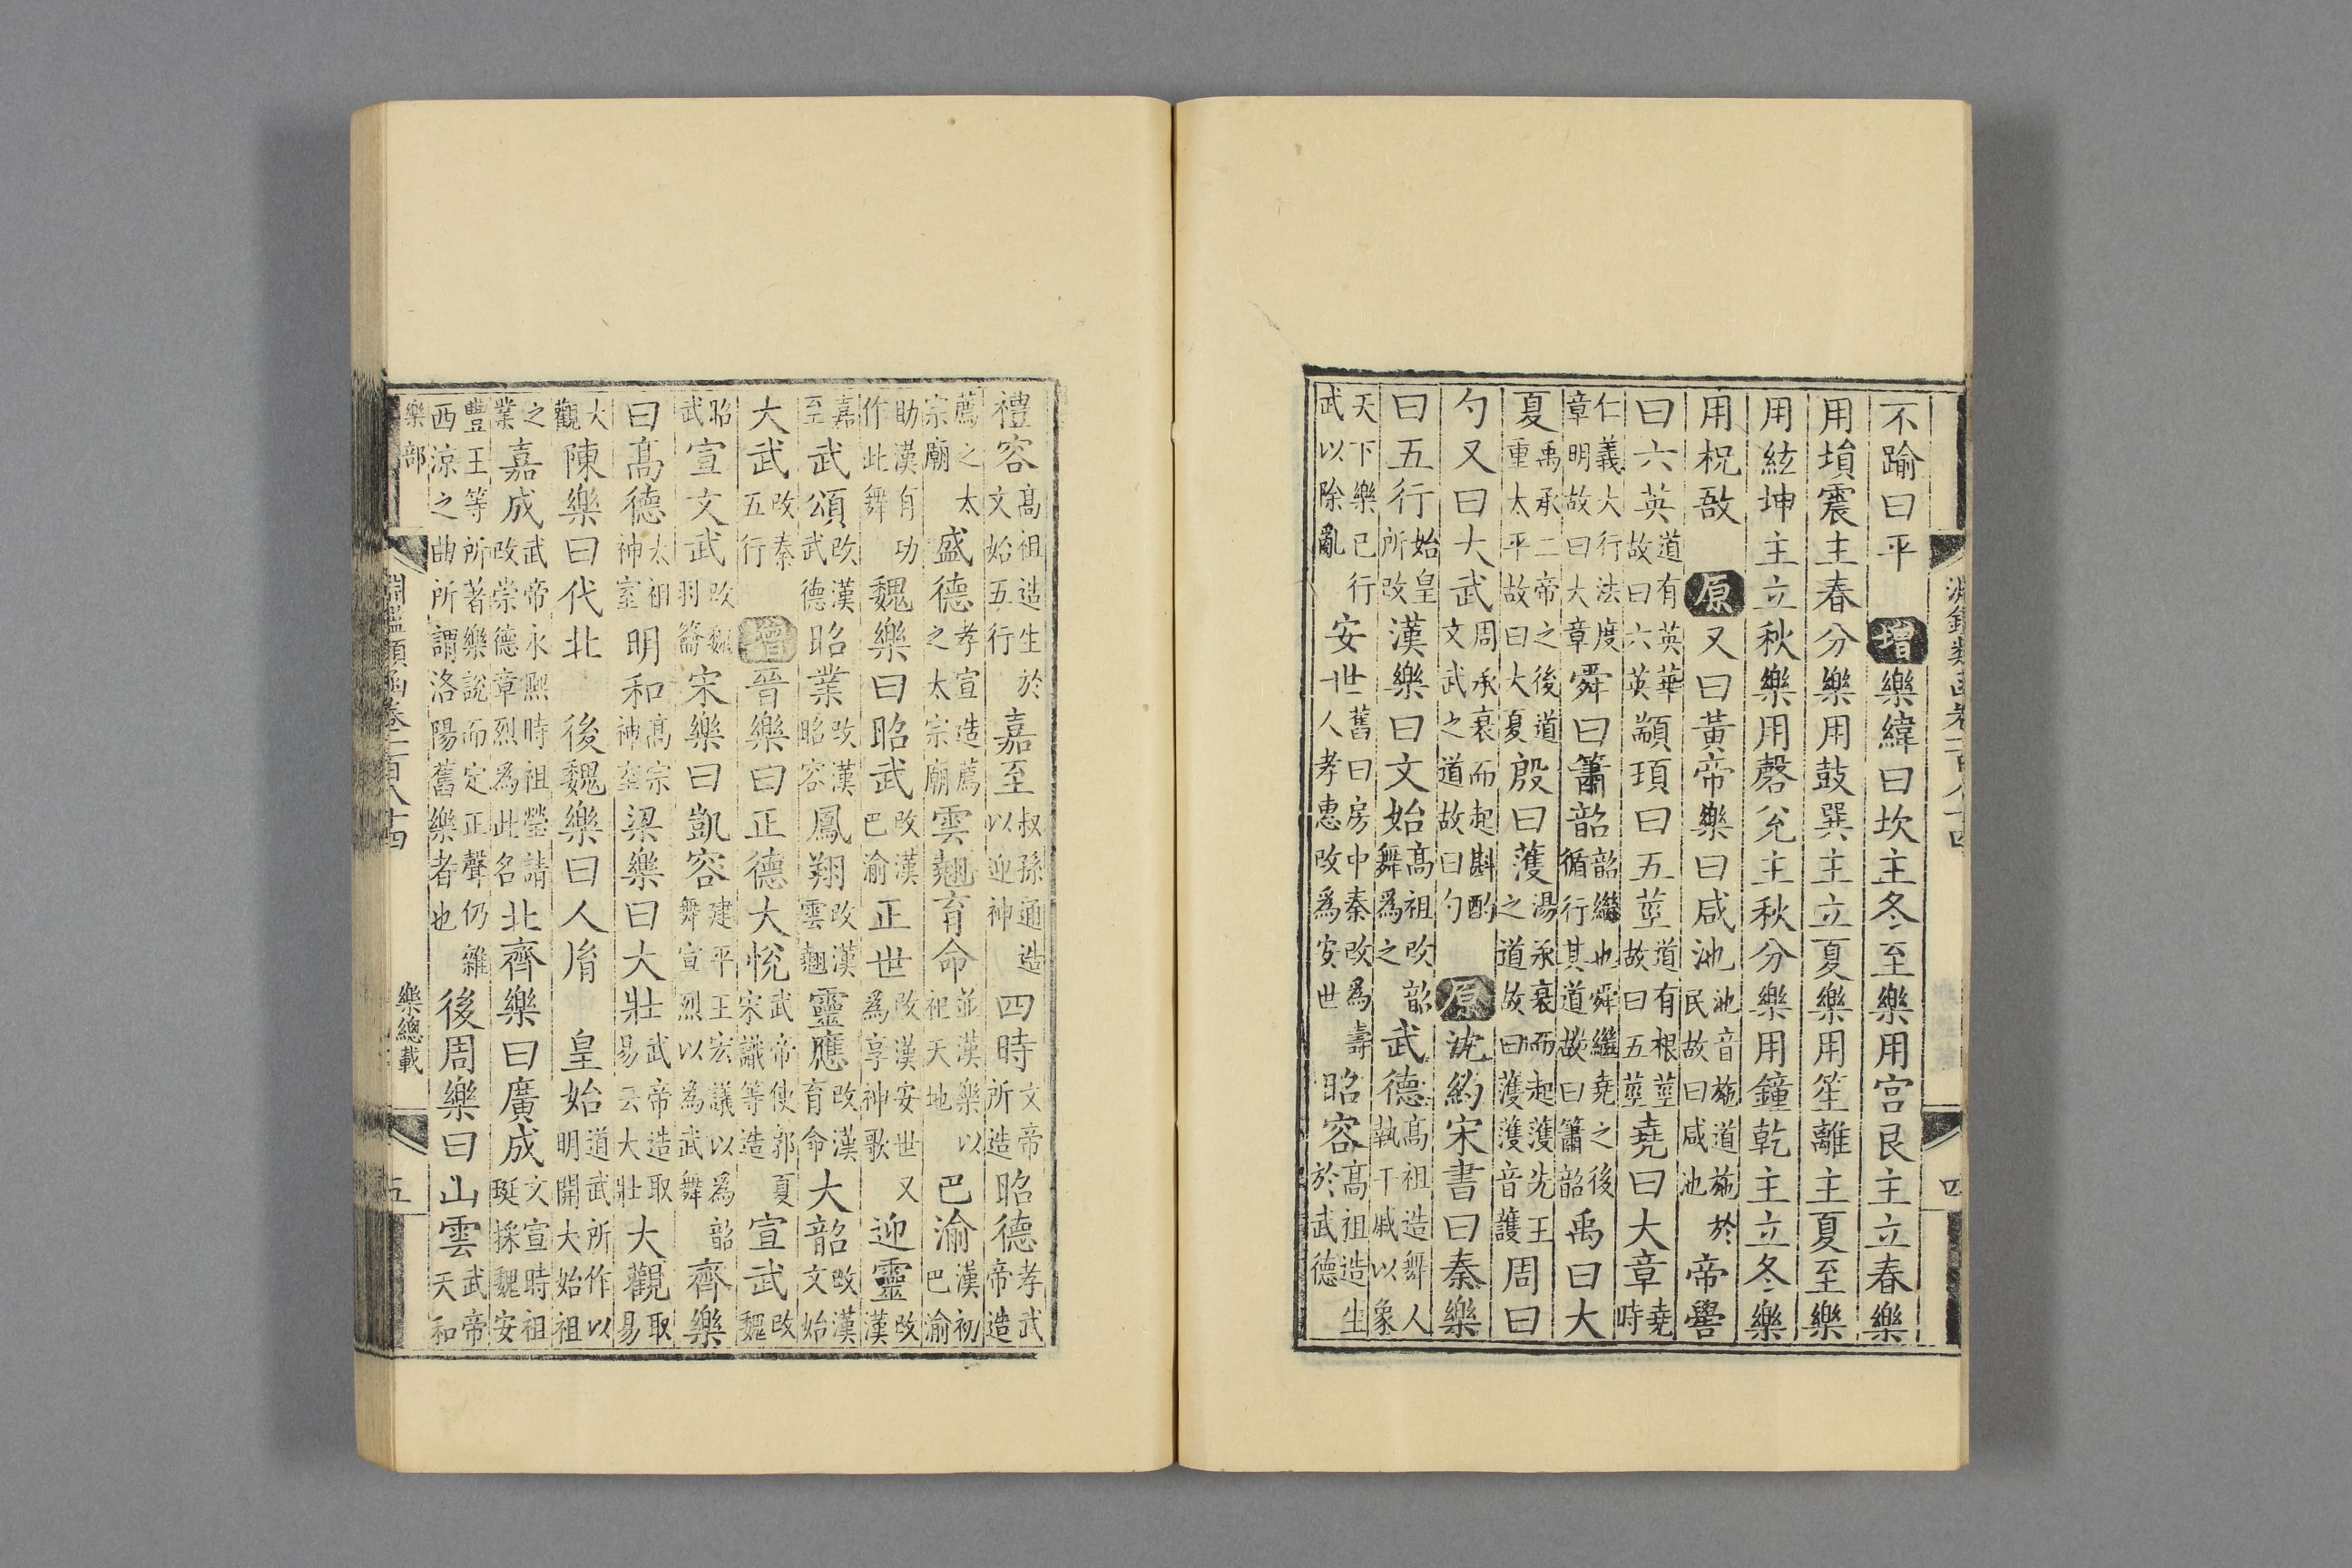 淵鑑類函卷二百八十四 四
不踰曰平 增 樂緯曰坎主冬至樂用宮艮主立春樂
用塤震主春分樂用鼓巽主立夏樂用笙離主夏至樂
用絃坤主立秋樂用磬兌主秋分樂用鐘乾主立冬樂
用柷敔 原 又曰黃帝樂曰咸池池音施道施於民故曰咸池帝嚳
曰六英道有英華故曰六英顓頊曰五莖道有根莖故曰五莖堯曰大章堯時
仁義大行法度章明故曰大章舜曰簫韶韶繼也舜繼堯之後循行其道故曰簫韶禹曰大
夏禹承二帝之後道重太平故曰大夏殷曰濩湯承衰而起濩先王之道故曰濩濩音護周曰
勺又曰大武周承衰而起斟酌文武之道故曰勺 原 沈約宋書曰秦樂
曰五行始皇所改漢樂曰文始高祖改韶舞為之武德高祖造舞人執干戚以象
天下樂已行武以除亂安世舊曰房中秦改為壽人孝惠改爲安世昭容高祖造生於武德
禮容高祖造生於文始五行嘉至叔孫通造以迎神四時文帝所造昭德孝武帝造
薦之太宗廟盛德孝宣造薦之太宗廟雲翹育命並漢樂以祀天地巴渝漢初巴渝
助漢有功作此舞魏樂曰昭武改漢巴渝正世改漢安世又爲享神歌迎靈改漢
嘉至武頌改漢武德昭業改漢昭容鳳翔改漢雲翹靈應改漢育命大韶改漢文始
大武改秦五行 增 晉樂曰正德大悅武帝使郭夏宋識等造宣武改魏
昭武宣文武改魏羽籥宋樂曰凱容建平王宏議以爲韶舞宣烈以為武舞齊樂
曰高德太祖神室明和高宗神室梁樂曰大壯武帝造取易云大壯大觀取易
大觀陳樂曰代北 後魏樂曰人胤 皇始道武所作以明開大始祖
之業嘉成武帝永熙時祖瑩請改崇德章烈為此名北齊樂曰廣成文宣時祖珽採魏安
豐王等所著樂說而定正聲仍雜西涼之曲所謂洛陽舊樂者也後周樂曰山雲武帝天和
樂部 淵鑑類函卷二百八十四 樂總載 五